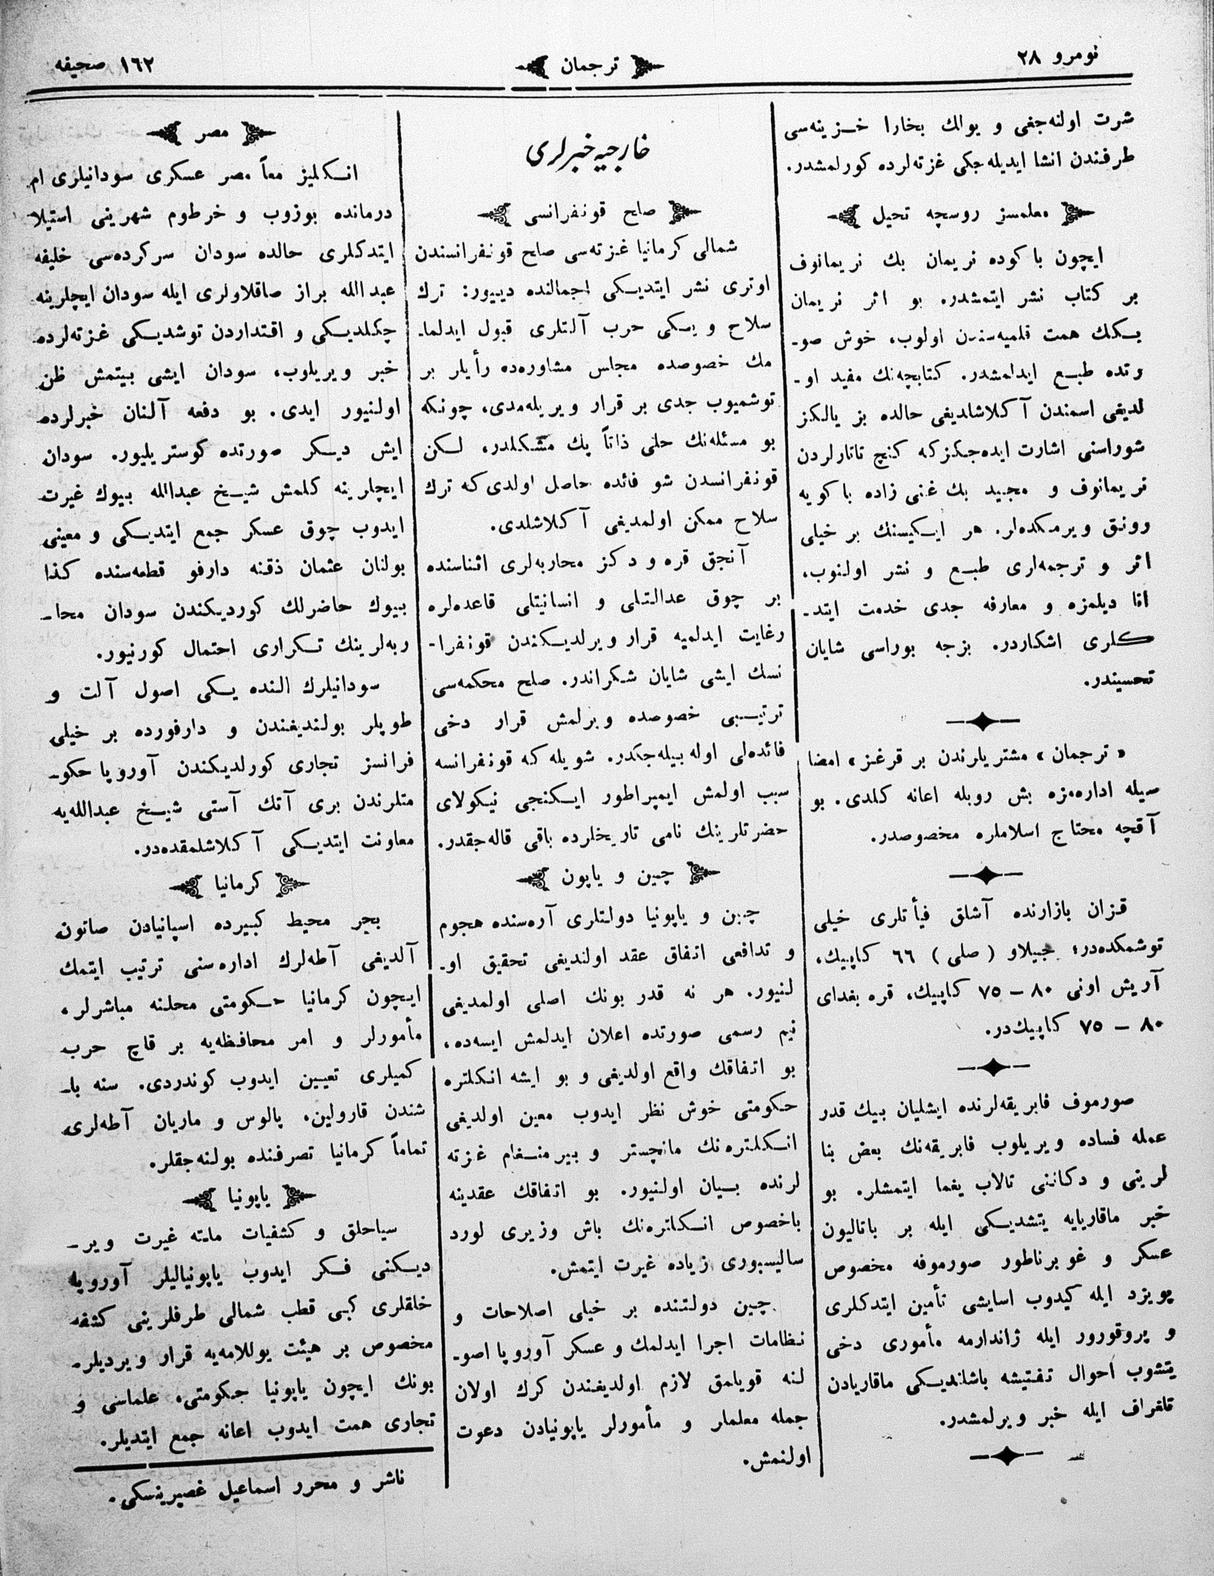 نومرو ٢٨
ترجمان
١٦٢ صحیفه
شرت اولنه‌جغی و یوالك بخارا خـزینه‌سی
طرفندن انشا ایدیله‌جکی غزته‌لرده کورلمشدر.
معلمسز روسچه تحیل
ایچون باکوده نریمان بك نریمانوف
بر کتاب نشر ایتمشدر. بو اثر نریمان
بیکك همت قلمیه‌سندن اولوب، خوش صو-
رتده طبع ایدلمشدر. کتابچه‌نك مفید او-
لدیغی اسمندن آکلاشلدیغی حالده بز یالکز
شوراسنی اشارت ایده‌جکزکه کنج تاتارلردن
نریمانوف و مجید بك غنی زاده باکویه
رونق ویرمکده‌لر. هر ایکیسنك بر خیلی
اثر و ترجمه‌لری طبع و نشر اولنوب،
انا دیلمزه و معارفه جدی خدمت ایتد-
کلری اشکاردر. بزجه بوراسی شایان
تحسیندر.
« ترجمان » مشتریلرندن بر قرغز» امضا
سیله اداره‌مزه بش روبله اعانه کلدی. بو
آقچه محتاج اسلاملره مخصوصدر.
قزان بازارنده آشلق فیأتلری خیلی
توشمکده‌در؛ جیلاو (صلی) ٦٦ کاپیك،
آریش اونی ٨٠ – ٧٥ کاپیك، قره بغدای
٨٠ – ٧٥ کاپیك‌در.
صورموف فابریقه‌لرنده ایشلیان بیك قدر
عمله فساده ویریلوب فابریقه‌نك بعض بنا
لرینی و دکاننی تالاب یغما ایتمشلر. بو
خبر ماقاریایه یتشدیکی ایله بر باتالیون
عسکر و غوبرناطور صورموفه مخصوص
پویزد ایله کیدوب اسایشی تأمین ایتدکلری
و پروقورور ایله ژاندارمه مأموری دخی
یتشوب احوال تفتیشه باشلندیکی ماقاریادن
تلغراف ایله خبر ویرلمشدر.
خارجیه خبرلری
صلح قونفرانسی
شمالی کرمانیا غزته‌سی صلح قونفرانسندن
اوتری نشر ایتدیکی اجمالنده دیيور: ترك
سلاح و یسکی حرب آلتلری قبول ایدلمـ
مك خصوصده مجلس مشاوره‌ده رأیلر بر
توشمیوب جدی بر قرار ویریله‌مدی، چونکه
بو مسئله‌نك حلی ذاتاً یك مشکلدر، لـکن
قونفرانسدن شو فائده حاصل اولدی‌که ترك
سلاح ممکن اولمدیغی آکلاشلدی.
آنجق قره و دکز محاربه‌لری اثناسنده
بر چوق عدالتلی و انسانیتلی قاعده‌لره
رغایت ایدلمیه قرار ویرلدیکندن قونفرا-
نسك ایشی شایان شکراندر. صلح محکمه‌سی
ترتیبی خصوصده ویرلمش قرار دخی
فائده‌لی اوله بیله‌جکدر. شویله که قونفرانسه
سبب اولمش ایمپراطور ایکنجی نیکولای
حضرتلرینك نامی تاریخلرده باقی قاله‌جقدر.
چین و یاپون
چین و یاپونیا دولتلری آره‌سنده هجوم
و تدافعی اتفاق عقد اولندیغی تحقیق او-
لنیور. هر نه قدر بونك اصلی اولمدیغی
نیم رسمی صورتده اعلان ایدلمش ایسه‌ده،
بو اتفاقك واقع اولدیغی و بو ایشه انکلتره
حکومتی خوش نظر ایدوب معین اولدیغی
انکلتره‌نك مانچستر و بیرمنغام غزته
لرنده بیان اولنیور. بو اتفاقك عقدینه
باخصوص انکلتره‌نك باش وزیری لورد
سالیسبوری زیاده غیرت ایتمش.
چین دولتنده بر خیلی اصلاحات و
نظامات اجرا ایدلمك و عسکر آوروپا اصو-
لنه قویلمق لازم اولدیغندن کرك اولان
جمله معلملر و مأمورلر یاپونیادن دعوت
اولنمش.
مصر
انـکلیز معاً مصر عسکری سودانیلری ام
درمانده بوزوب و خرطوم شهرینی استیلا
ایتدکلری حالده سودان سرکرده‌سی خلیفه
عبدالله براز صاقلاولری ایله سودان ایچلرینه
چکلدیکی و اقتداردن توشدیکی غزته‌لرده
خبر ویریلوب، سودان ایشی بیتمش ظن
اولنیور ایدی. بو دفعه آلنان خبرلرده
ایش دیکر صورتده کوستریلیور. سودان
ایچلرینه کلمش شیخ عبدالله بیوك غیرت
ایدوب چوق عسکر جمع ایتدیکی و معینی
بولنان عثمان ذقنه دارفو قطعه‌سنده کذا
بیوك حاضرلك کوردیکندن سودان محا-
ربه‌لرینك تکراری احتمال کورنیور.
سودانیلرك النده یـکی اصول آلت و
طوپلر بولندیغندن و دارفورده بر خیلی
فرانسز تجاری کورلدیکندن آوروپا حکو-
متلرندن بری آتك آستی شیخ عبدالله‌یه
معاونت ایتدیکی آکلاشلمقده‌در.
کرمانیا
بحر محیط کبیرده اسپانیادن صاتون
آلدیغی آطه‌لرك اداره‌سنی ترتیب ایتمك
ایچون کرمانیا حکومتی محلنه مباشرلر،
مأمورلر و امر محافظه‌یه بر قاچ حرب
کمیلری تعیین ایدوب کوندردی. سنه با-
شندن قارولین. پالوس و ماریان آطه‌لری
تماماً کرمانیا تصرفنده بولنه‌جقلر.
یاپونیا
سیاحلق و کشفیات ملته غیرت ویر-
دیکنی فکر ایدوب یاپونیالیلر آوروپا
خلقلری کبی قطب شمالی طرفلرینی کشفه
مخصوص بر هیئت یوللامه‌یه قرار ویردیلر-
بونك ایچون یاپونیا حکومتی، علماسی و
تجاری همت ایدوب اعانه جمع ایتدیلر.
ناشر و محرر اسماعیل غصپرینسکی.